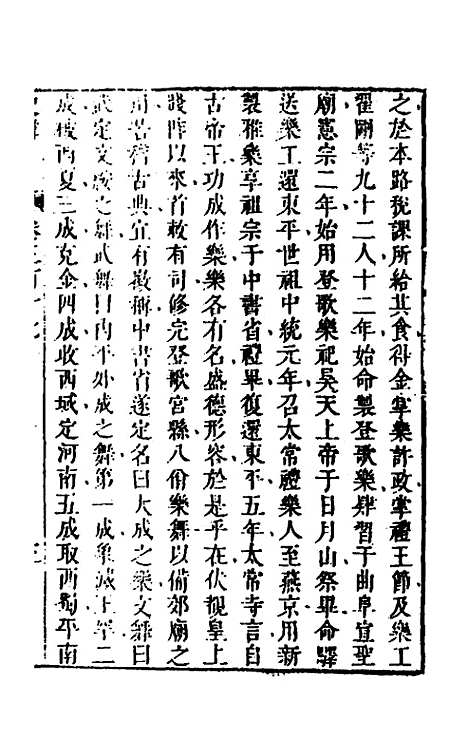 之於本路稅課所給其食得金掌樂許政掌禮王節及樂工
翟剛等九十二人十二年始命製登歌樂肄習于曲阜宣聖
廟憲宗二年始用登歌樂祀昊天上帝于日月山祭畢命驛
送樂工還東平世祖中統元年召太常禮樂人至燕京用新
製雅樂享祖宗于中書省禮畢復還東平五年太常寺言自
古帝王功成作樂樂各有名盛德形容於是乎在伏覩皇上
踐阼以來首敕有司修完登歌宮縣八佾樂舞以備郊廟之
用若稽古典宜有徽稱中書省遂定名曰大成之樂文舞曰
武定文綏之舞武舞曰內平外成之舞第一成象滅王罕二
成破西夏三成克金四成收西域定河南五成取西蜀平南